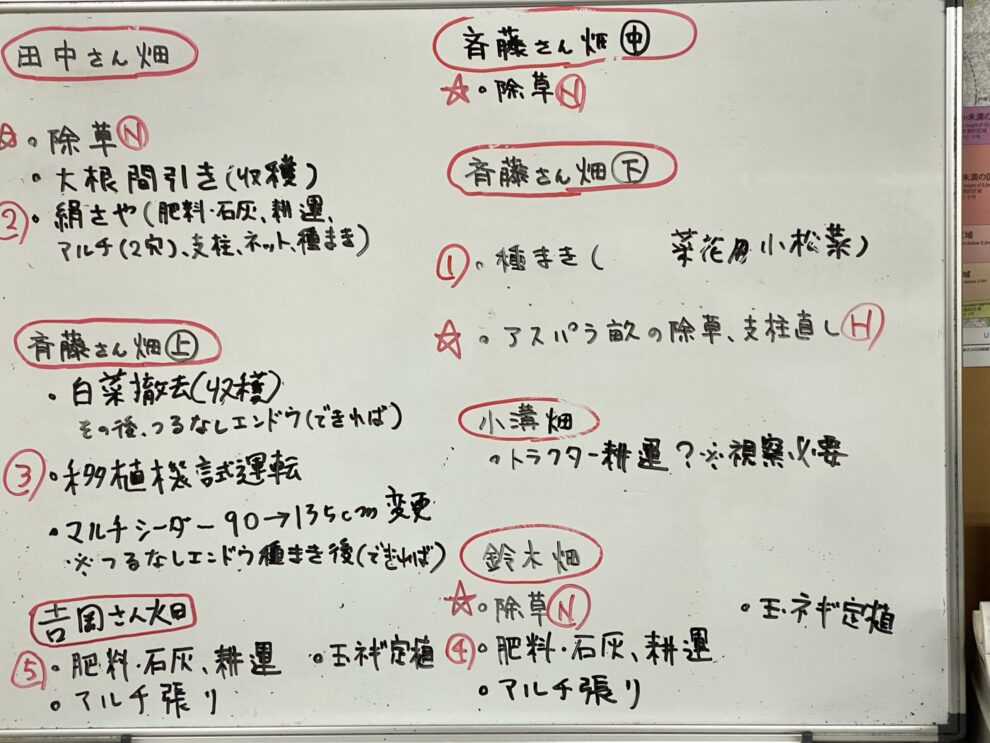 田中さん畑
☆・除草Ⓝ
・大根間引き(収穫)
②・絹さや(肥料・石灰、耕運、
マルチ(2穴)、支柱、ネット、種まき)
斉藤さん畑㊤
・白菜撤去(収穫)
その後、つるなしエンドウ(できれば)
③・移植機試運転
・マルチシーダー90→135cm変更
※つるなしエンドウ種まき後(できれば)
吉岡さん畑
⑤・肥料・石灰、耕運 ・玉ネギ定植
・マルチ張り
斉藤さん畑㊥
☆・除草Ⓝ
斉藤さん畑㊦
①・種まき( 菜花用小松菜)
☆・アスパラ畝の除草、支柱直しⒽ
小溝畑
・トラクター耕運?※視察必要
鈴木畑
☆・除草Ⓝ ・玉ネギ定植
④・肥料・石灰、耕運
・マルチ張り